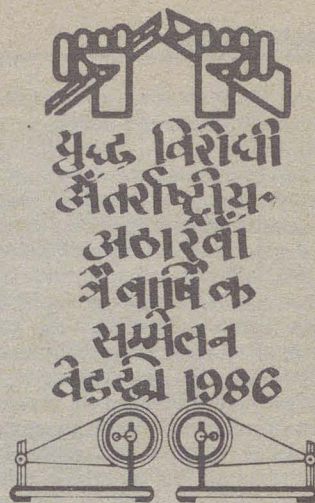 युद्ध विरोधी
अंतर्राष्ट्रीय-
अठारेवाँ
त्रैवार्षिक
सम्मेलन
वेडछी 1986